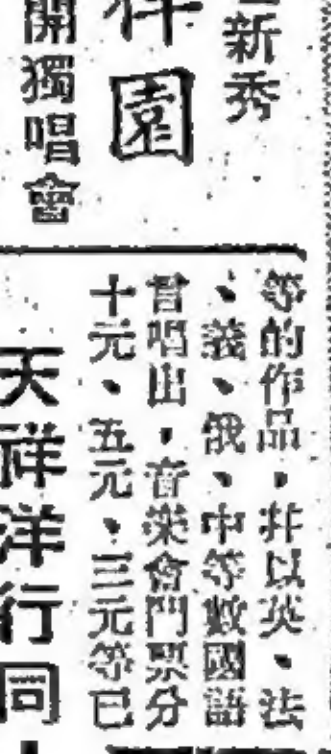 新秀
祥園
開獨唱會
等的作品，并以英、法
、義、俄、中等數國語
言唱出，音樂會門票分
十元、五元、三元等已
天祥洋行同